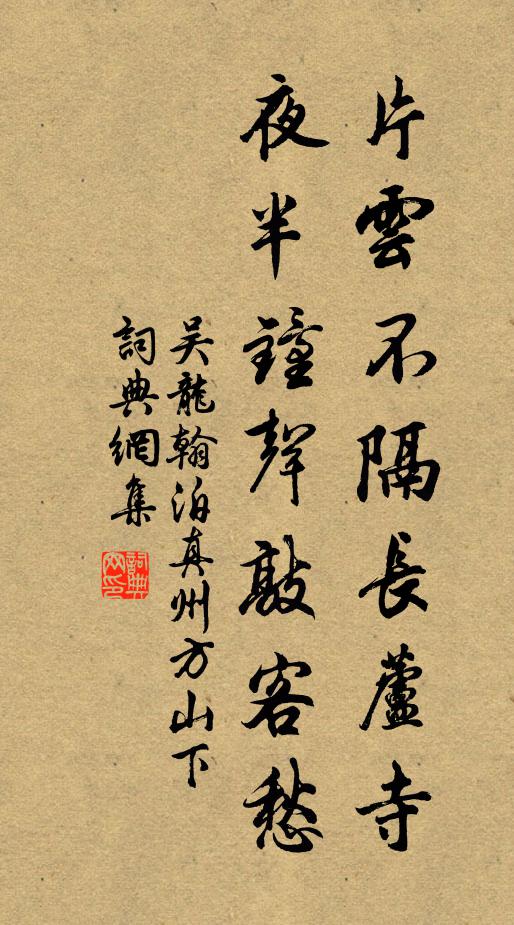 片雲不隔長蘆寺
夜半鐘聲敲客愁
吴龍翰泊真州方山下
詞典網集
詞典網印